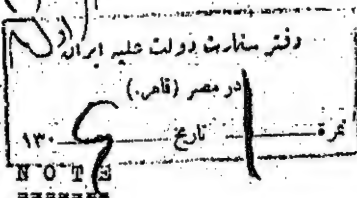 دفتر سفارت دولت علیه ایران
در مصر (قاهره)
نمرة تاریخ ۱۳۰
NOTE